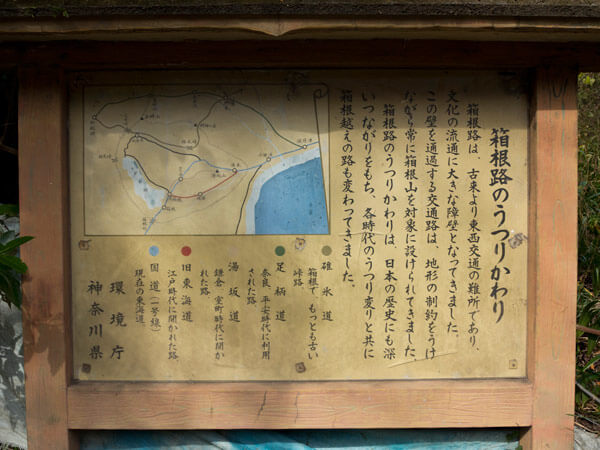 箱根路のうつりかわり
箱根路は、古来より東西交通の難所であり、
文化の流通に大きな障壁となってきました。
この壁を通過する交通路は、地形の制約をうけ
ながら常に箱根山を対象に設けられてきました。
箱根路のうつりかわりは、日本の歴史にも深
いつながりをもち、各時代のうつり変りと共に
箱根越えの路も変わってきました。
碓氷道
箱根で もっとも古い
峠路
足柄道
奈良、平安時代に利用
された路
湯坂道
鎌倉 室町時代に開か
れた路
旧東海道
江戸時代に開かれた路
国道(一号線)
現在の東海道
環境庁
神奈川県